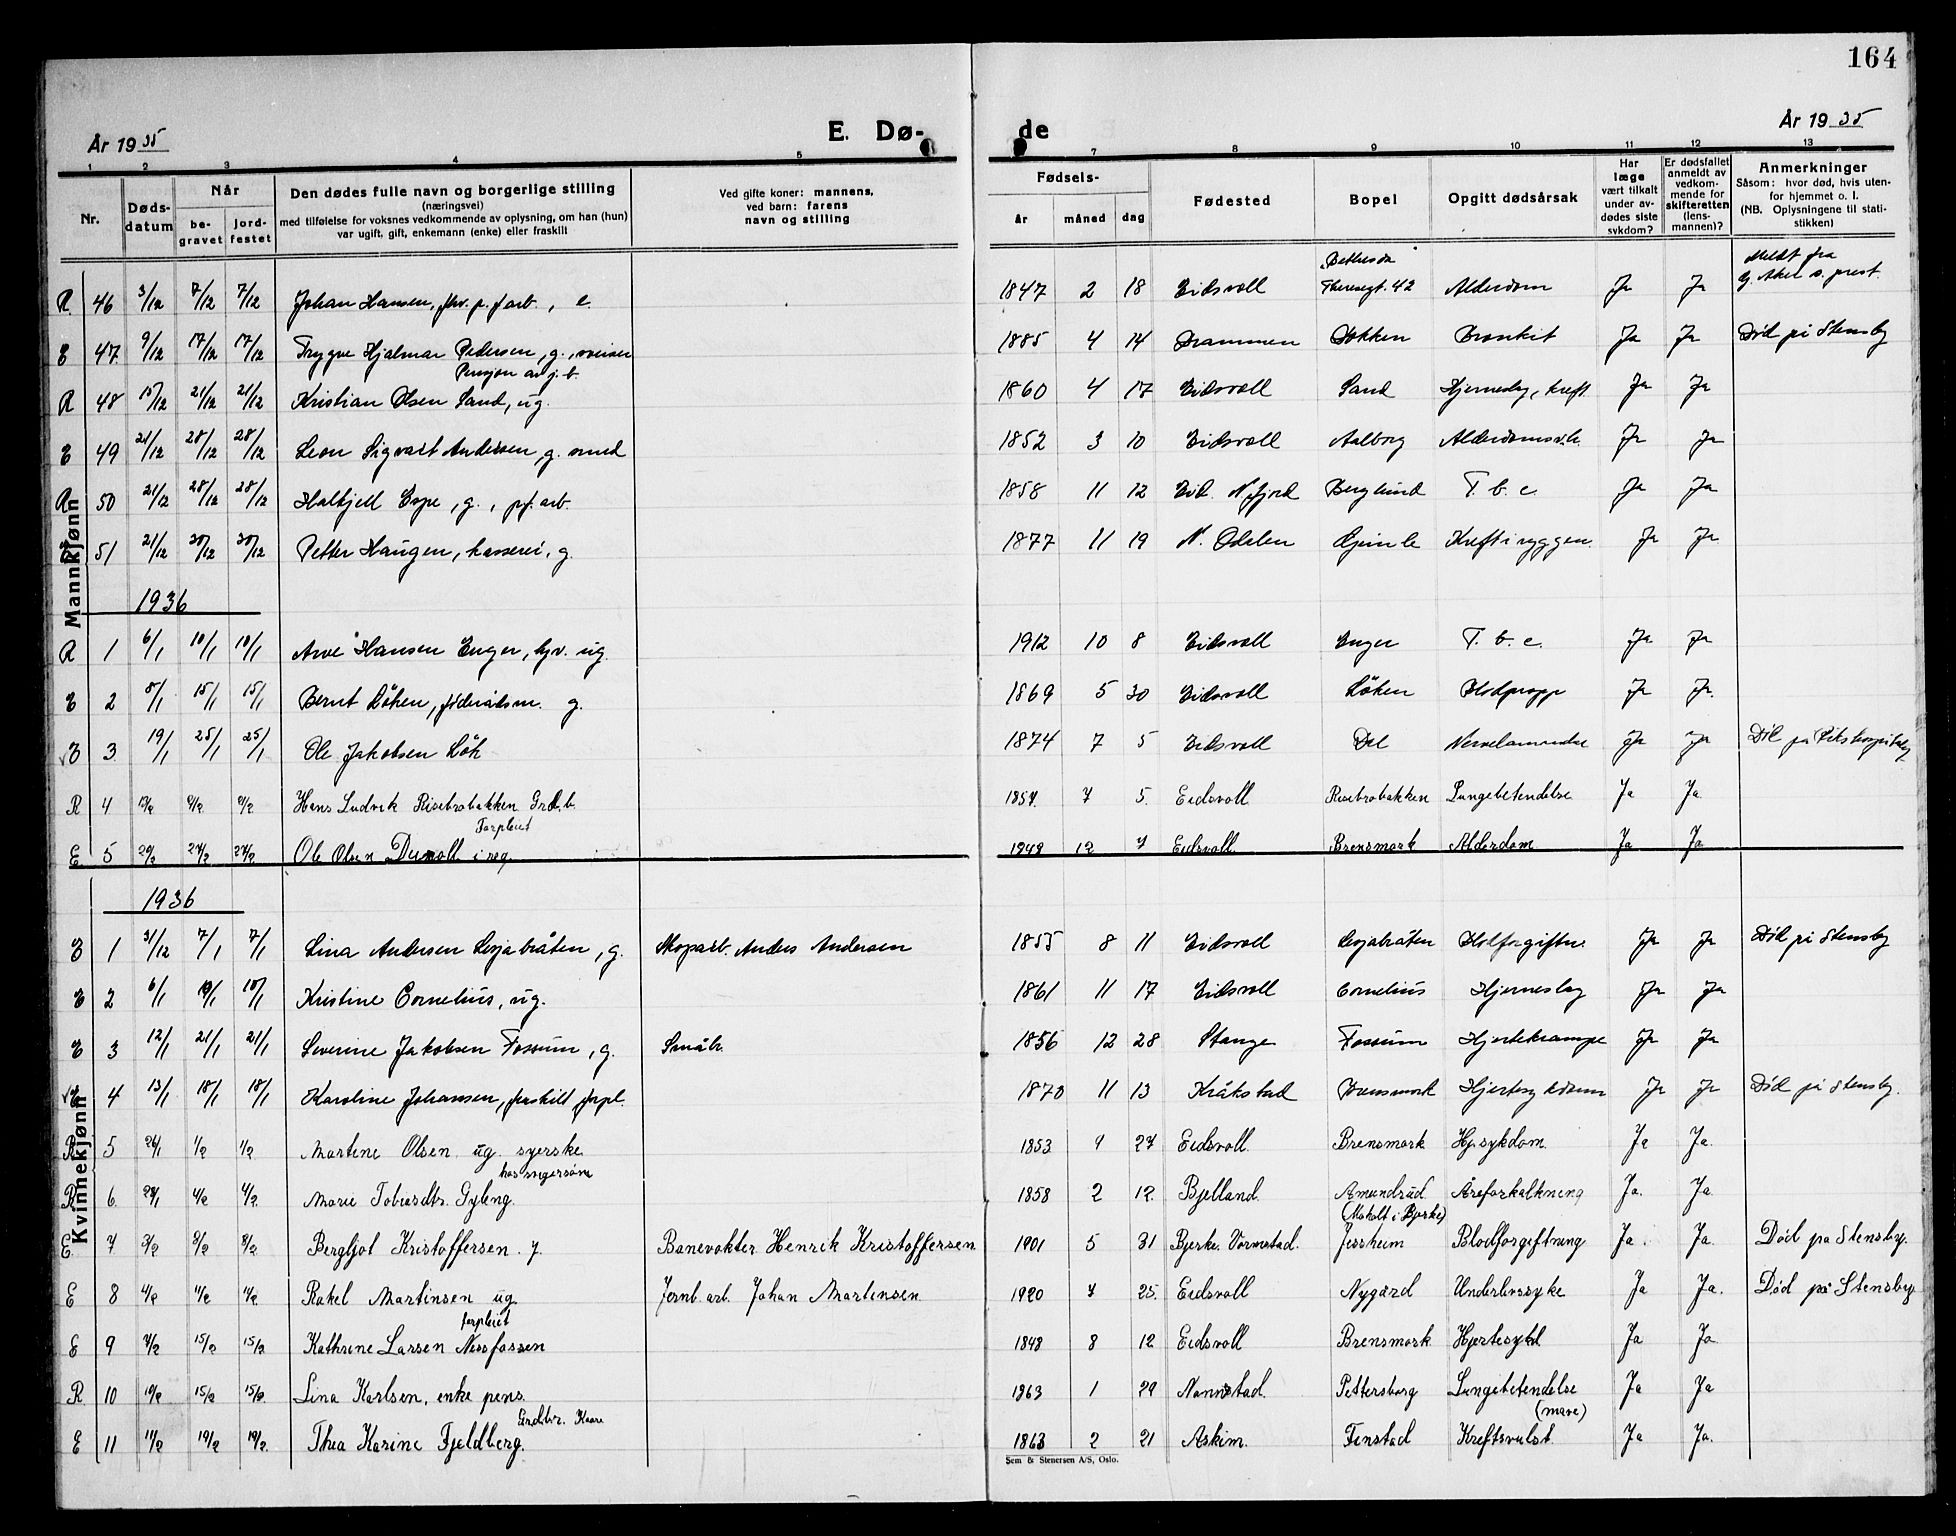 164
År 1935
E. Dø-
de
År 1935
1 2 3 4 5 7 8 9 10 11 12 13
Nr.
Døds-
datum
Når
be-
gravet
jord-
festet
Den dødes fulle navn og borgerlige stilling
(næringsvei)
med tilføielse for voksnes vedkommende av oplysning, om han (hun)
var ugift, gift, enkemann (enke) eller fraskilt
Ved gifte koner: mannens,
ved barn: farens
navn og stilling
Fødsels-
år måned dag
Fødested
Bopel
Opgitt dødsårsak
Har
læge
vært tilkalt
under av-
dødes siste
sykdom?
Er dødsfallet
anmeldt av
vedkom-
mende for
skifteretten
(lens-
mannen)?
Anmerkninger
Såsom: hvor død, hvis uten-
for hjemmet o. l.
(NB. Oplysningene til stati-
stikken)
Mannkjønn
R 46 3/12 7/12 7/12 Johan Hansen, fhv. p. f. arb., e. 1847 2 18 Eidsvoll "Bethesda" Theresegt. 42 Alderdom Ja Ja Meldt fra G. Aker s. prest.
E 47 9/12 17/12 17/12 Trygve Hjalmar Pedersen, g., sveiser 1885 4 14 Drammen Dokken Bronkit Ja Ja Död på Stensby
Pensjon av j. b.
R 48 15/12 21/12 21/12 Kristian Olsen Sand, ug. 1860 4 17 Eidsvoll Sand Hjerneslag, kreft. Ja Ja
E 49 21/12 28/12 28/12 Leon Sigvart Andersen, g. smed 1852 3 10 Eidsvoll Aalborg Alderdomsv. Ja Ja
R 50 21/12 28/12 28/12 Halkjell Espe, g., pf. arb. 1858 11 12 Eid. N.fjord Berglund T. b. c. Ja Ja
51 21/12 30/12 30/12 Petter Haugen, kasserer, g. 1877 11 19 N. Odalen Gjimle Kreft i ryggen. Ja Ja
1936
R 1 6/1 10/1 10/1 Arve Hansen Enger, hjv. ug. 1912 10 8 Eidsvoll Enger T. b. c. Ja Ja
E 2 8/1 15/1 15/1 Bernt Löken, föderådsm. g. 1869 5 30 Eidsvoll Löken Blodpropp Ja Ja.
E 3 19/1 25/1 25/1 Ole Jakobsen Lök 1874 7 5 Eidsvoll Dal Nervelammelse Ja Ja Död på Rikshospitalet
R 4 Hans Ludvik Risebrobakken Grdb. 1857. 7 5. Eidsvoll Risebrobakken Lungebetendelse Ja Ja
Forpleiet
E 5 Ole Olsen Dumoll i reg. 12 7 Eidsvoll Brensmork Alderdom Ja Ja
1936
Kvinnekjønn
E 1 31/12 7/1 7/1 Lina Andersen Lesjabråten, g. Skoparb. Anders Andersen 1855 8 11 Eidsvoll Lesjabråten Ja Ja Död på Stensby
E 2 6/1 10/1 10/1 Kristine Cornelius, ug. 1861 11 17 Eidsvoll Cornelius Hjerneslag Ja Ja
E 3 12/1 21/1 21/1 Severine Jakobsen Fossum, g. Småbr. 1856 12 28 Stange Fossum Hjertekrampe Ja Ja
4 13/1 18/1 18/1 Karoline Johansen, fraskilt, forpl. 1870 11 13 Kråkstad Brensmork Ja Ja Död på Stensby.
R 5 26/1 1/2 1/2 Martine Olsen ug syerske 1853 4 27 Eidsvoll Brensmork Hj.sykdom. Ja Ja.
hos svigersøn
R 6. 28/1 4/2 4/2 Marie Tobiasdtr. Gyleng. 1858 2 12. Bjelland. Amundrud Åreforkalkning Ja. Ja
(Mokolt i Bjerke)
E. 7 3/2 8/2 8/2 Bergljot Kristoffersen. g. Banevokter Henrik Kristoffersen 1901 5 31 Bjerke. Vormstad. Jessheim Blodforgiftning Ja. Ja. Död pa Stensby.
E 8 4/2 11/2 11/2 Rakel Martinsen ug. Jernb. arb. Johan Martinsen 1920 7 25. Eidsvoll Nygård Underlivssyke Ja Ja. Död på Stensby
forpleiet
E 9 7/2 15/2 15/2 Kathrine Larsen Nessfossen 1848 8 12 Eidsvoll Brensmork Hjertesykd. Ja Ja
R 10 10/2 15/2 15/2 Lina Karlsen, enke pens. 1863 1 29 Nannestad. Pettersborg Lungebetendelse Ja Ja
Grdbr. Kaare (mave)
E 11 11/2 19/2 19/2 Thea Karine Fjeldberg. 1863 2 21 Askim. Finstad Kreftsvulst. Ja Ja.
Sem & Stenersen A/S, Oslo.